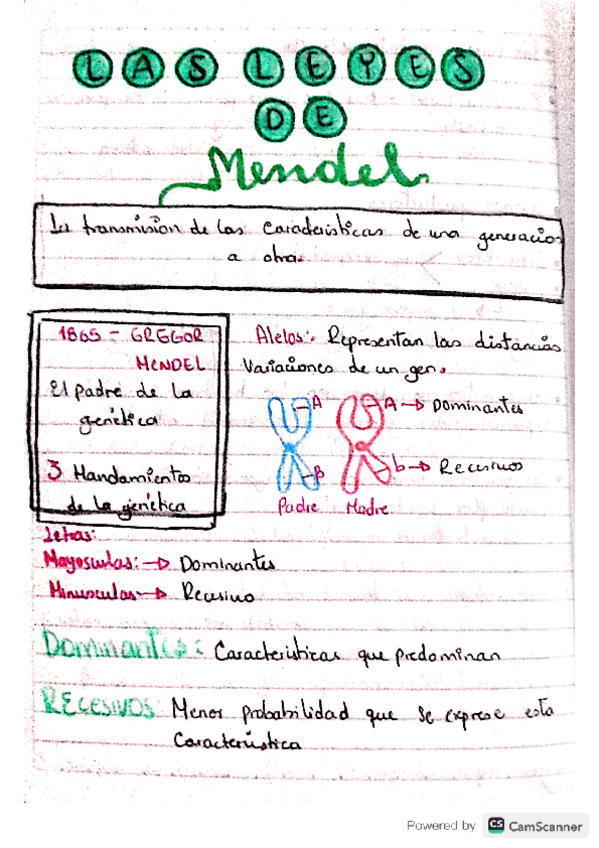 LAS LEYES
DE
Mendel
La transmision de las caracteristicas de una generacion
a otra.
1865 - GREGOR
MENDEL
El padre de la
genética
3 Mandamientos
de la genética
Alelos: Representan las distancias
variaciones de un gen.
A A → Dominantes
B b → Recesivos
Padre Madre
Letras:
Mayosculas: → Dominantes
Minusculas → Recesivo
Dominantes: Caracteristicas que predominan
RECESIVOS Menor probabilidad que se exprese esta
Caracteristica
Powered by CS CamScanner